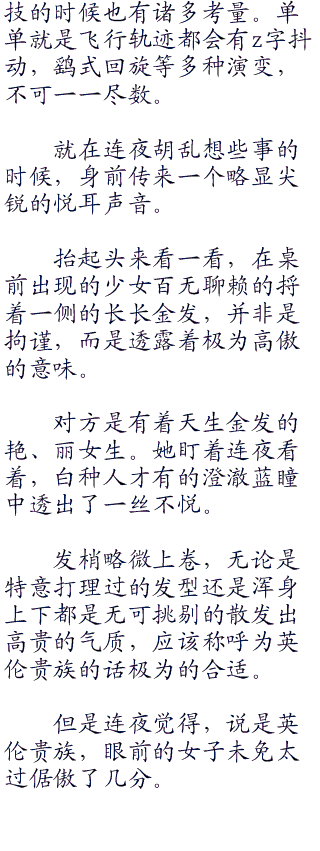 技的时候也有诸多考量。单
单就是飞行轨迹都会有z字抖
动，鹞式回旋等多种演变，
不可一一尽数。
就在连夜胡乱想些事的
时候，身前传来一个略显尖
锐的悦耳声音。
抬起头来看一看，在桌
前出现的少女百无聊赖的捋
着一侧的长长金发，并非是
拘谨，而是透露着极为高傲
的意味。
对方是有着天生金发的
艳、丽女生。她盯着连夜看
着，白种人才有的澄澈蓝瞳
中透出了一丝不悦。
发梢略微上卷，无论是
特意打理过的发型还是浑身
上下都是无可挑剔的散发出
高贵的气质，应该称呼为英
伦贵族的话极为的合适。
但是连夜觉得，说是英
伦贵族，眼前的女子未免太
过倨傲了几分。